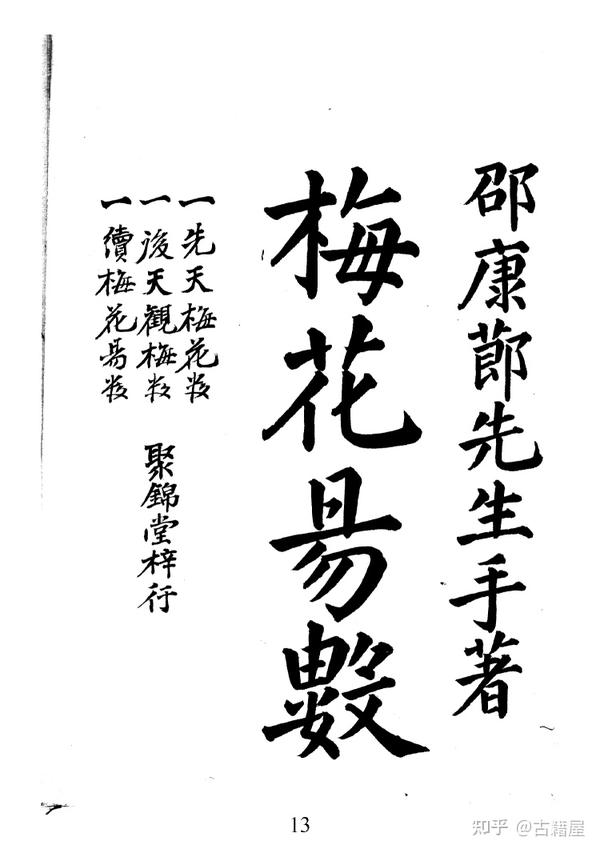 邵康節先生手著
梅花昜數
一先天梅花数
一後天觀梅数
一續梅花昜数
聚錦堂梓行
13
知乎 @古籍屋